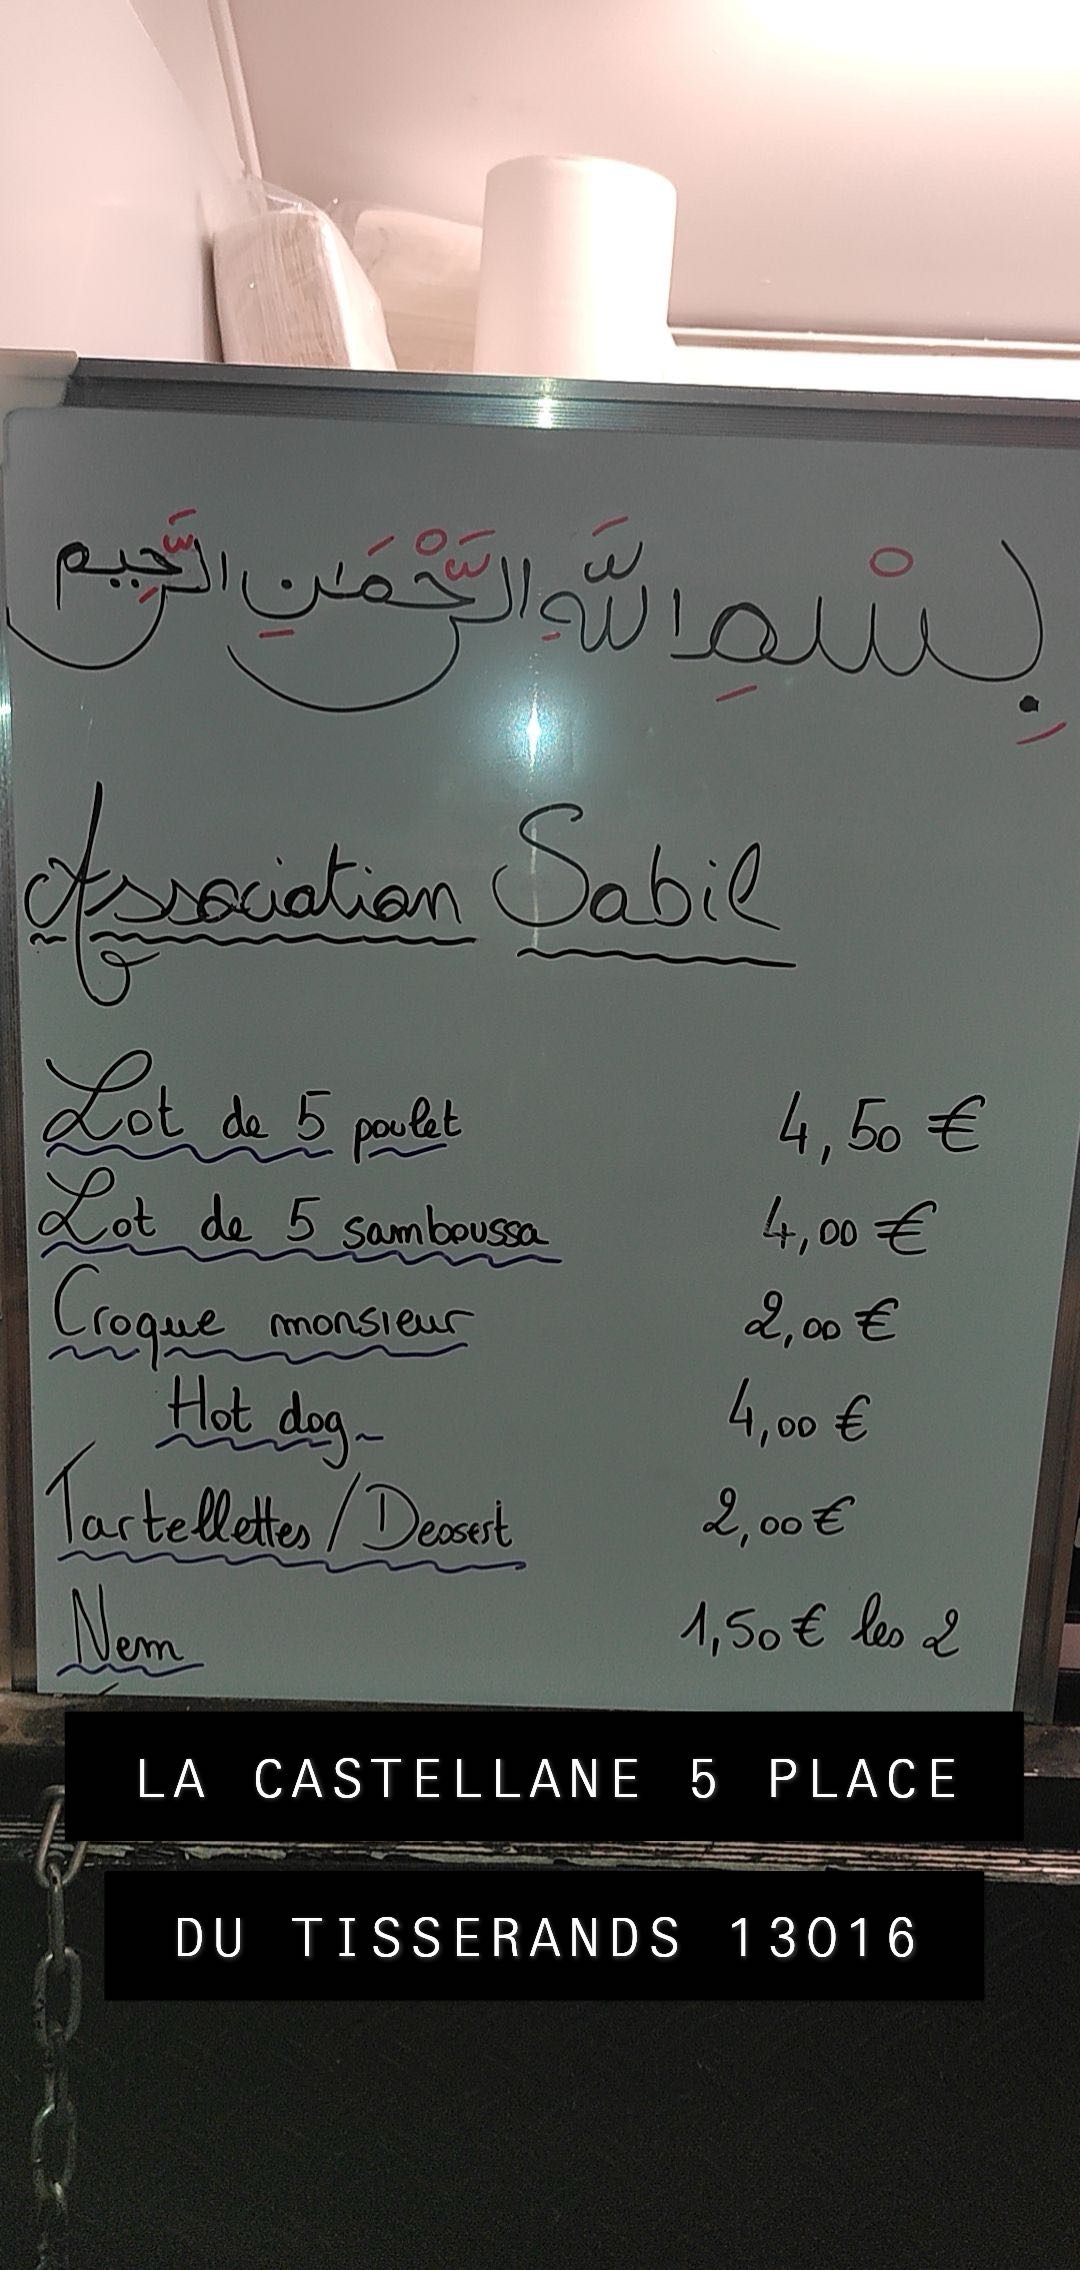 بِسْمِ اللَّهِ الرَّحْمَٰنِ الرَّحِيمِ
Association Sabil
Lot de 5 poulet 4,50 €
Lot de 5 samboussa 4,00 €
Croque monsieur 2,00 €
Hot dog 4,00 €
Tartellettes / Dessert 2,00 €
Nem 1,50 € les 2
LA CASTELLANE 5 PLACE
DU TISSERANDS 13016